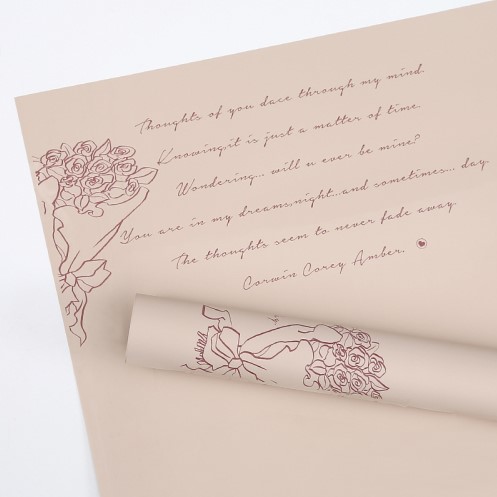 Thoughts of you dace through my mind.
Knowingit is just a matter of time
Wondering... will u ever be mine?
You are in my dreams,night...and sometimes... day.
The thoughts seem to never fade away.
Corwin Corey Amber.